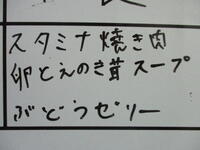 スタミナ焼き肉
卵とえのき茸スープ
ぶどうゼリー